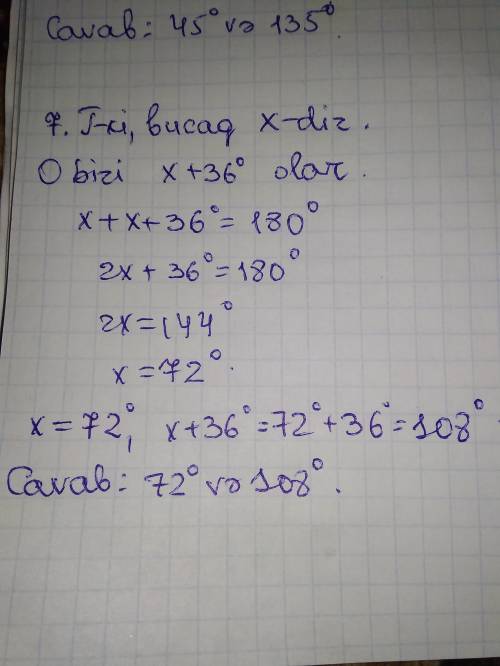 Cavab: 45° və 135°.
7. I-ci, bucaq x-dir.
O biri x+36° olar.
x+x+36°=180°
2x+36°=180°
2x=144°
x=72°.
x=72°, x+36°=72°+36°=108°
Cavab: 72° və 108°.